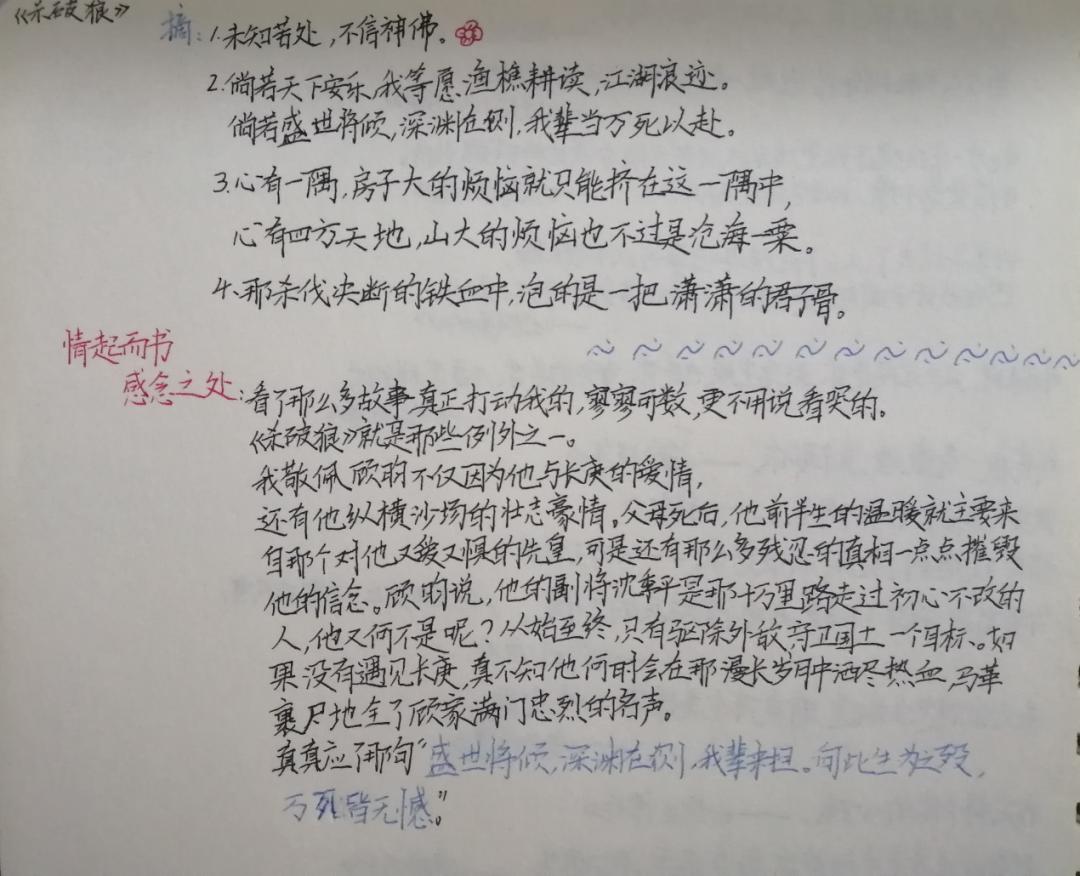 《杀破狼》
摘：1.未知苦处，不信神佛。
2.倘若天下安乐，我等愿渔樵耕读，江湖浪迹。
倘若盛世将倾，深渊在侧，我辈当万死以赴。
3.心有一隅，房子大的烦恼就只能挤在这一隅中，
心有四方天地，山大的烦恼也不过是沧海一粟。
4、那杀伐决断的铁血中，泡的是一把潇潇的君子骨。
情起而书
感念之处：看了那么多故事真正打动我的，寥寥可数，更不用说看哭的。
《杀破狼》就是那些例外之一。
我敬佩顾昀不仅因为他与长庚的爱情，
还有他纵横沙场的壮志豪情。父母死后，他前半生的温暖就主要来
自那个对他又爱又惧的先皇，可是还有那么多残忍的真相一点点摧毁
他的信念。顾昀说，他的副将沈季平是那十万里路走过初心不改的
人，他又何不是呢？从始至终，只有驱除外敌，守卫国土一个目标。如
果没有遇见长庚，真不知他何时会在那漫长岁月中洒尽热血，马革
裹尸地全了顾家满门忠烈的名声。
真真应了那句“盛世将倾，深渊在侧，我辈来担。何此生为之殁，
万死皆无憾。”